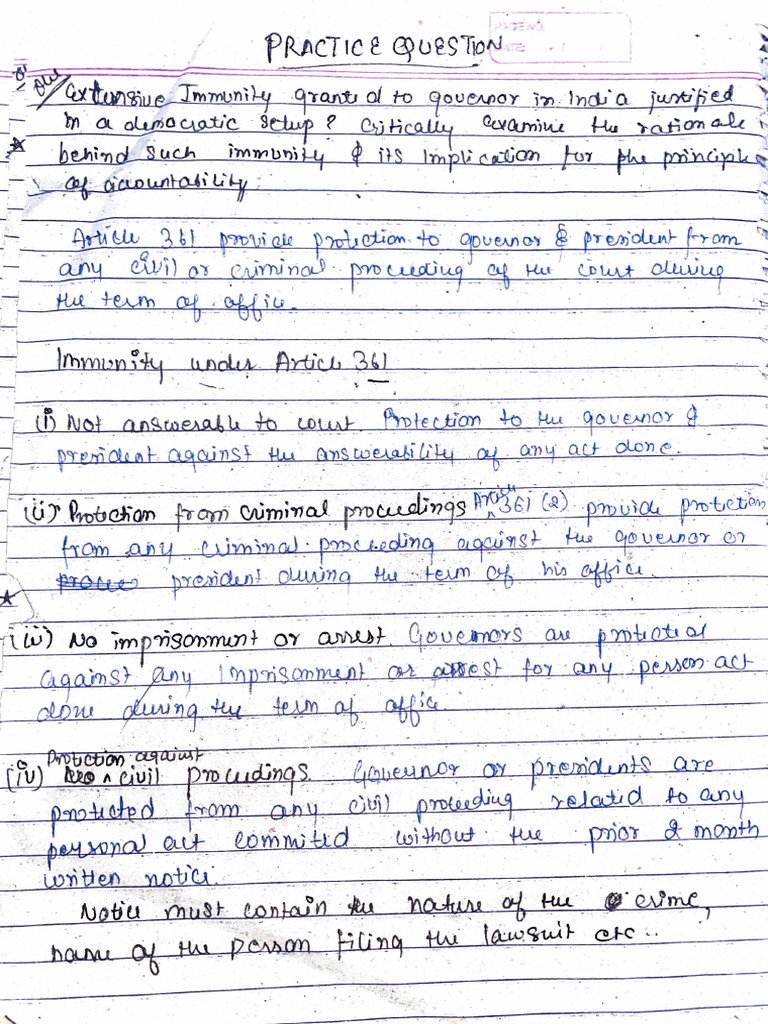 PRACTICE QUESTION
extensive Immunity granted to governor in India justified
in a democratic setup? Critically examine the rationale
behind such immunity & its implication for the principle
of accountability.
Article 361 provide protection to governor & president from
any civil or criminal proceeding of the court during
the term of office.
Immunity under Article 361
(i) Not answerable to court. Protection to the governor &
president against the answerability of any act done.
(ii) Protection from criminal proceedings Article 361 (2) provide protection
from any criminal proceeding against the governor or
president during the term of his office.
(iii) No imprisonment or arrest. Governors are protected
against any Inprisonment or arrest for any person act
done during the term of office.
Protection against
(iv) civil proceedings. Governor or presidents are
protected from any civil proceeding related to any
personal act committed without the prior 2 month
written notice.
Notice must contain the nature of the crime,
name of the person filing the lawsuit etc..